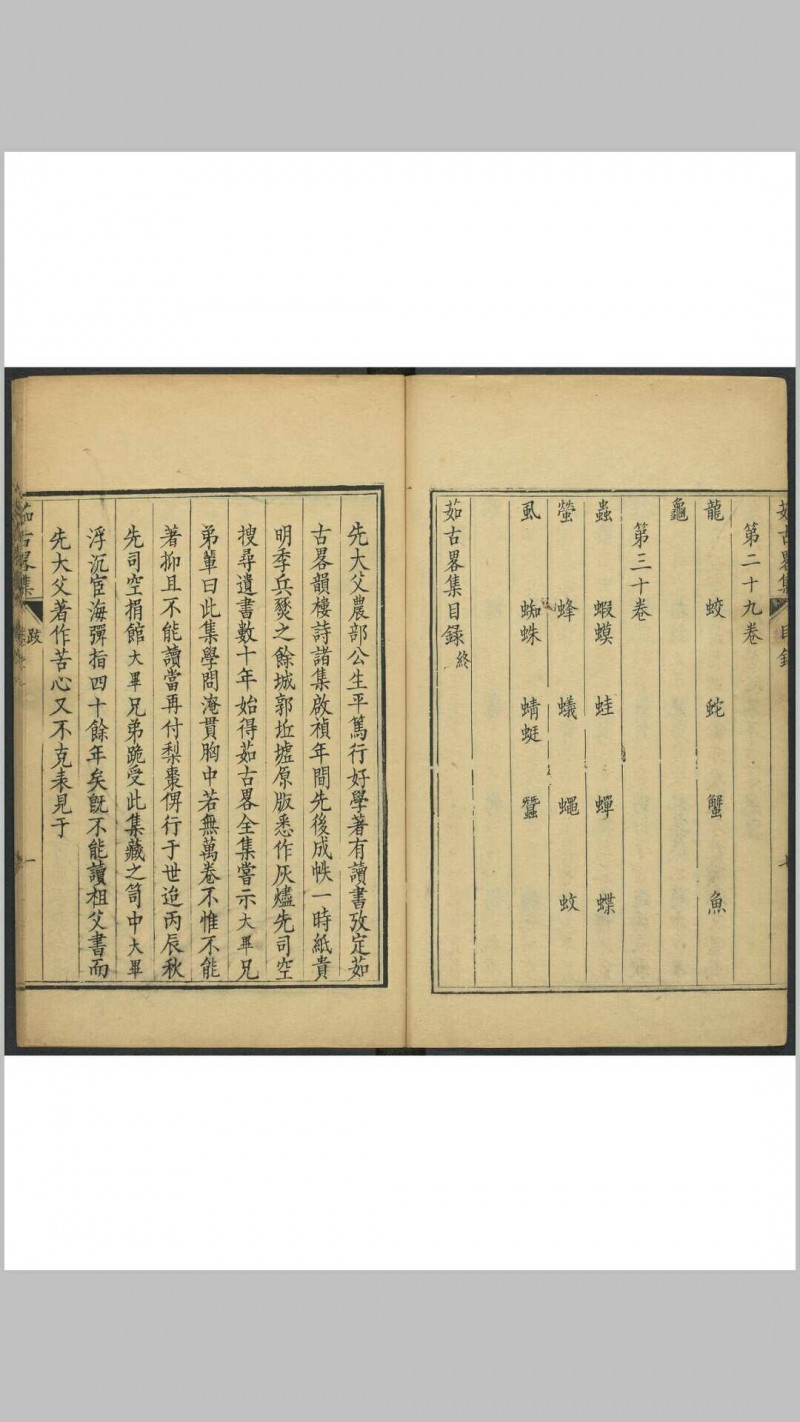 茹古畧集 目録
第二十九卷
龍 蛟 蛇 蟹 魚
龜
第三十卷
蟲 蝦蟆 蛙 蟬 蝶
螢 蜂 蟻 蠅 蚊
虱 蜘蛛 蜻蜓 蠶
茹古畧集目録終
先大父農部公生平篤行好學著有讀書攷定茹
古畧韻樓詩諸集啟禎年間先後成帙一時紙貴
明季兵燹之餘城郭坵墟原版悉作灰燼先司空
搜尋遺書數十年始得茹古畧全集嘗示大畢兄
弟輩曰此集學問淹貫胸中若無萬卷不惟不能
著抑且不能讀當再付梨棗俾行于世迨丙辰秋
先司空捐館大畢兄弟跪受此集藏之笥中大畢
浮沉宦海彈指四十餘年矣既不能讀祖父書而
先大父著作苦心又不克表見于
茹古畧集 跋 一